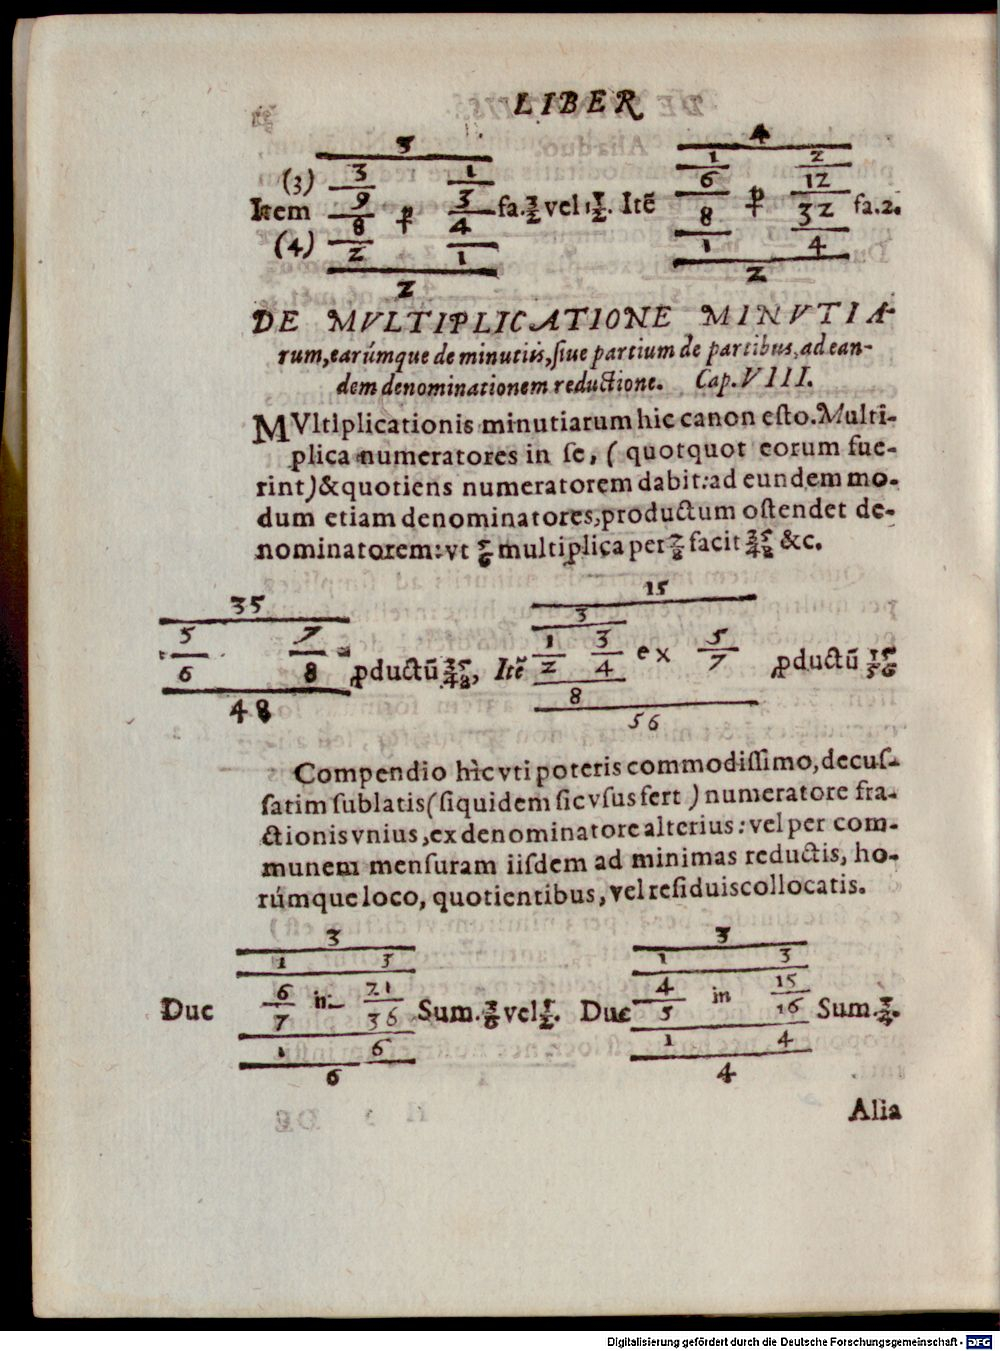 LIBER
3 4
3 1 1 2
(3) 9 3 6 12
Item ꝑ fa. 3/2 vel 1 1/2. Itẽ ꝑ fa. 2.
8 4 8 32
(4) 2 1 1 4
2 2
DE MVLTIPLICATIONE MINVTIA-
rum, earúmque de minutiis, siue partium de partibus, ad ean-
dem denominationem reductione. Cap. VIII.
MVltiplicationis minutiarum hic canon esto. Multi-
plica numeratores in se, ( quotquot eorum fue-
rint) & quotiens numeratorem dabit: ad eundem mo-
dum etiam denominatores, productum ostendet de-
nominatorem: vt 5/6 multiplica per 7/8 facit 35/48 &c.
35 15
5 7 3
6 8 ꝓductũ 35/48, Itẽ 1/2 3/4 ex 5/7 ꝓductũ 15/56
48 8
56
Compendio hìc vti poteris commodissimo, decus-
satim sublatis (siquidem sic vsus fert ) numeratore fra-
ctionis vnius, ex denominatore alterius: vel per com-
munem mensuram iisdem ad minimas reductis, ho-
rúmque loco, quotientibus, vel residuis collocatis.
3 3
1 3 1 3
Duc 6/7 in 21/36 Sum. 3/6 vel 1/2. Duc 4/5 in 15/16 Sum. 3/4.
1 6 1 4
6 4
Alia
Digitalisierung gefördert durch die Deutsche Forschungsgemeinschaft - DFG